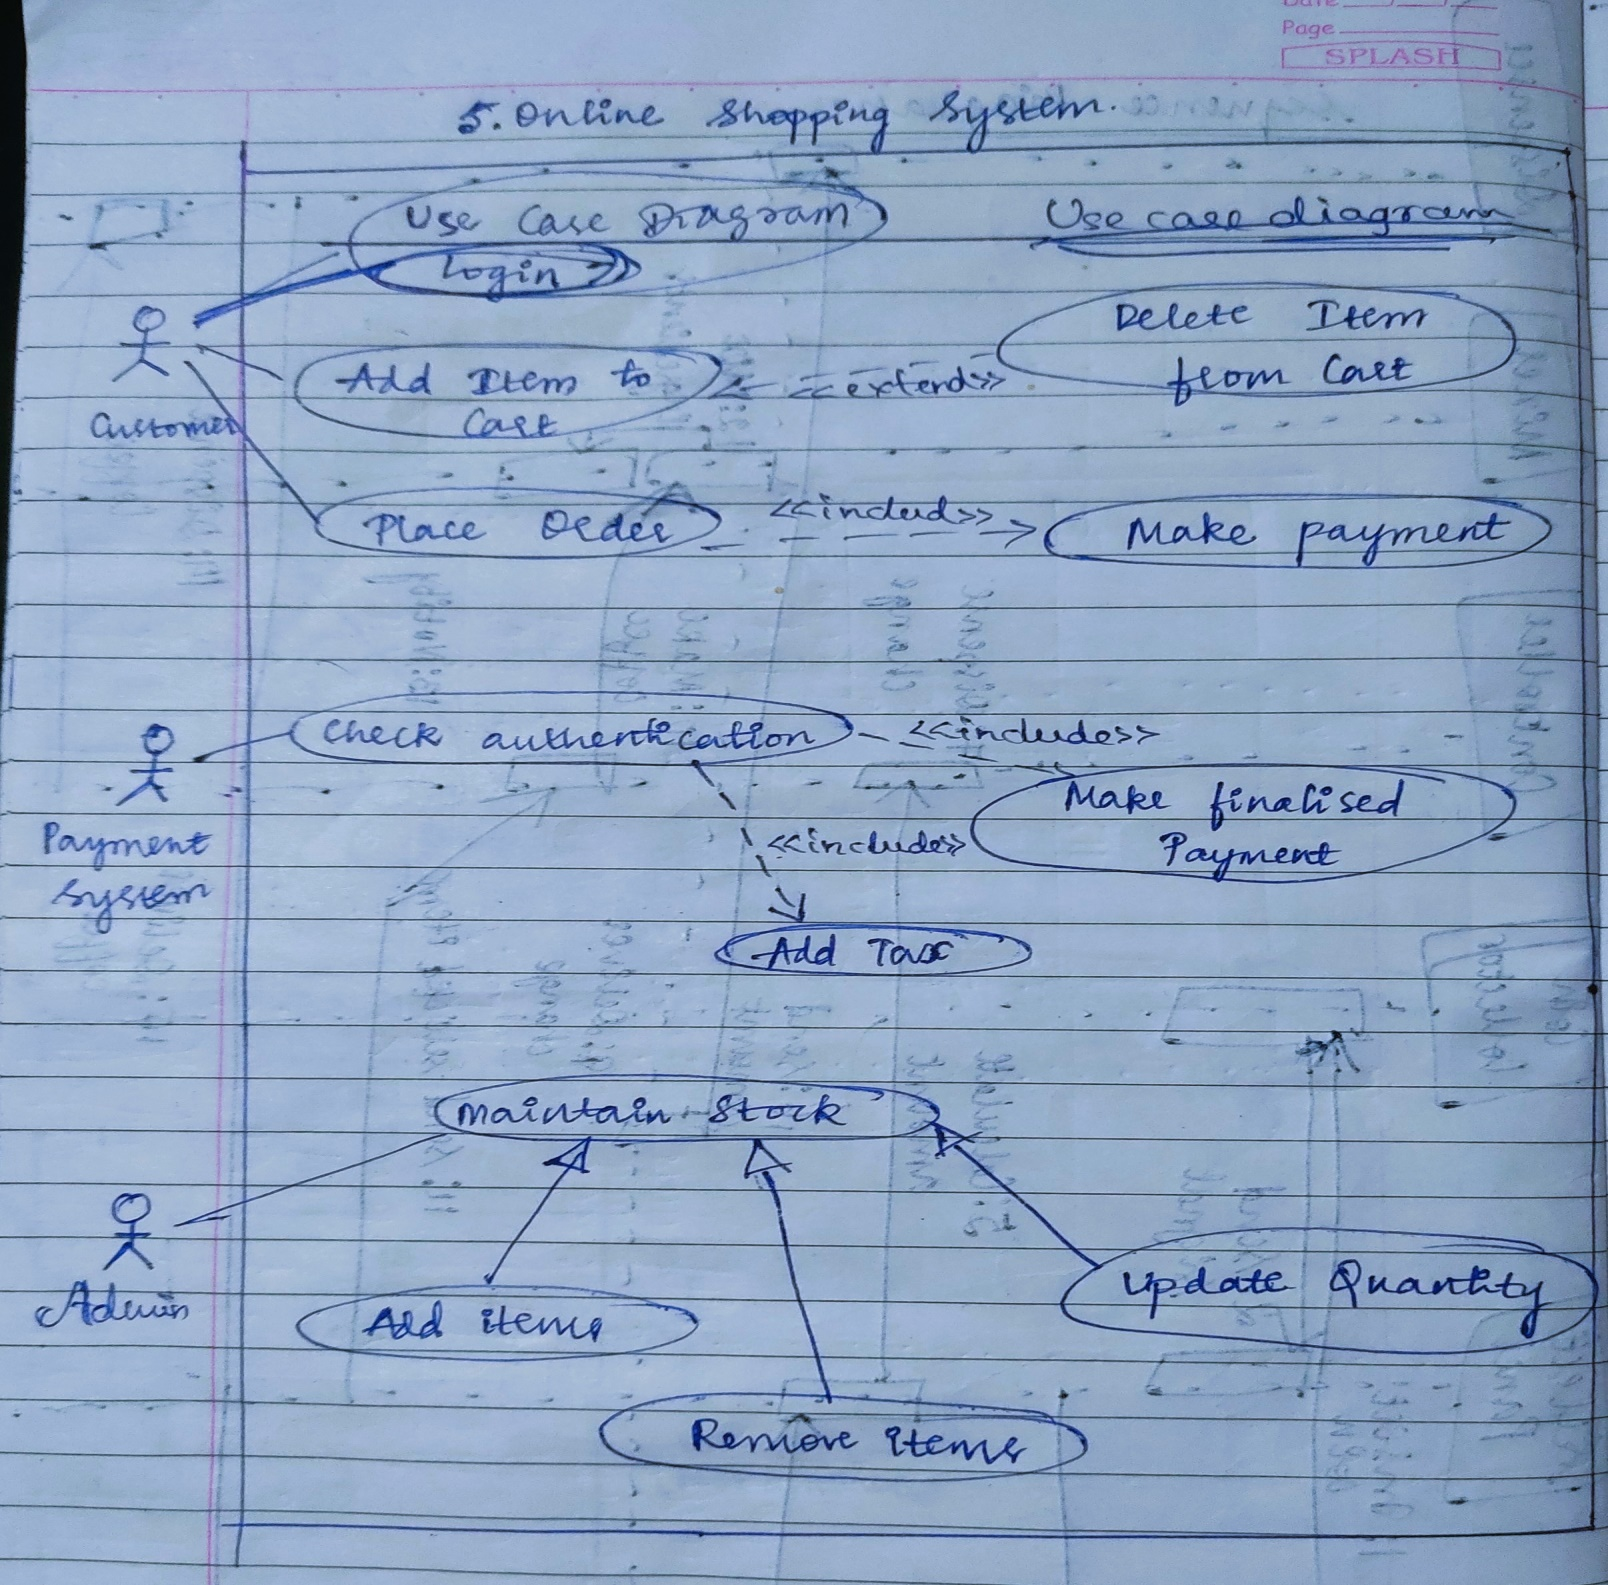 Date
Page
SPLASH
5. Online Shopping System.
Use Case Diagram
Use case diagram
Login
Delete Item
from Cart
Add Item to
Cart
<<extend>>
Customer
Place Order
<<includ>>
Make payment
Check authentication
<<include>>
Make finalised
Payment
Payment
System
<<include>>
Add Tax
Maintain Stock
Admin
Add items
Update Quantity
Remove items